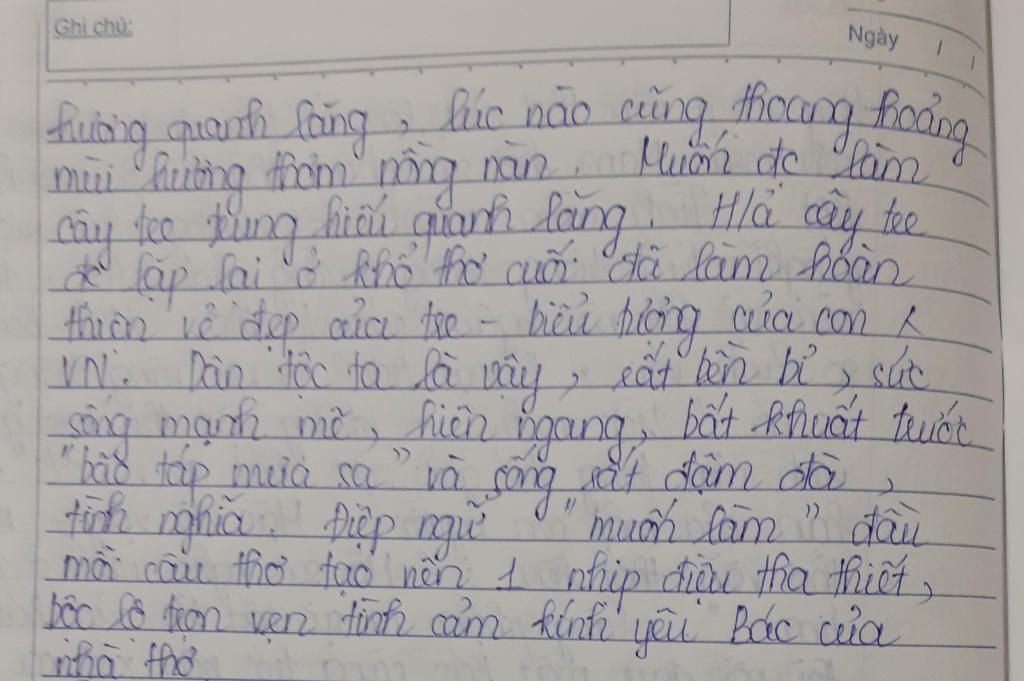 Ghi chú:
Ngày / /
hương quanh lăng, lúc nào cũng thoang thoảng
mùi hương thơm nồng nàn. Muốn đc làm
cây tre trung hiếu quanh lăng. H/ả cây tre
đc lặp lại ở khổ thơ cuối đã làm hoàn
thiện vẻ đẹp của tre - biểu tượng của con
VN. Dân tộc ta là vậy, rất bền bỉ, sức
sống mạnh mẽ, hiên ngang, bất khuất trước
"bão táp mưa sa" và sống rất đậm đà,
tình nghĩa. Điệp ngữ "muốn làm" đầu
mỗi câu thơ tạo nên 1 nhịp điệu tha thiết,
bộc lộ trọn vẹn tình cảm kính yêu Bác của
nhà thơ